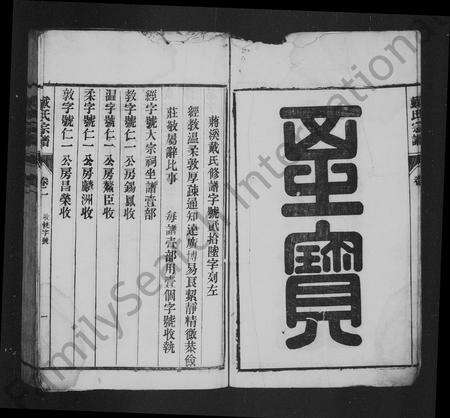 至寶
蔣溪戴氏修譜字號貳拾陸字刻左
經教溫柔敦厚疎通知達廣博易良絜靜精微恭儉
莊敬屬辭比事 每譜壹部用壹個字號收執
經字號大宗祠坐譜壹部
教字號仁一公房錫鳳收
溫字號仁一公房鰲臣收
柔字號仁一公房麟洲收
敦字號仁一公房昌榮收
戴氏宗譜 卷一 收執字號 一
戴氏宗譜
FamilySearch International